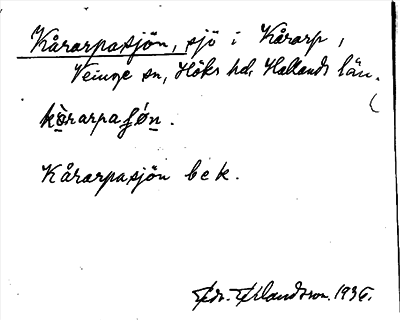 Kårarpasjön, sjö i Kårarp,
Veinge sn, Höks hd, Hallands län.
kòrarpaʃón.
Kårarpasjön bek.
1936.